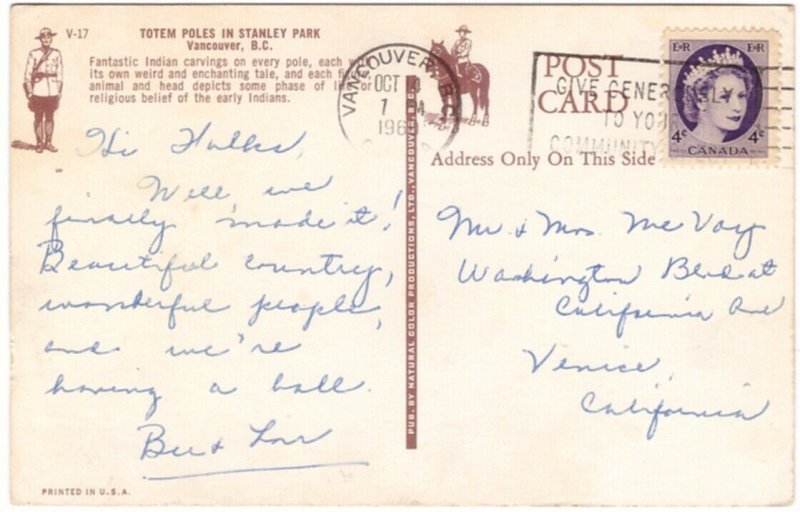 V-17 TOTEM POLES IN STANLEY PARK
Vancouver, B.C.
Fantastic Indian carvings on every pole, each with
its own weird and enchanting tale, and each
animal and head depicts some phase of life or
religious belief of the early Indians.
Hi Folks,
Well we
finally "made it!
Beautiful country,
wonderful people,
and we're
having a ball.
Bee & Lou
PRINTED IN U.S.A.
PUB. BY NATURAL COLOR PRODUCTIONS, LTD., VANCOUVER, B.C.
VANCOUVER, B.C.
OCT
7
196
POST
CARD
GIVE GENEROUSLY
TO YOUR
COMMUNITY
E II R E II R
4c 4c
CANADA
Address Only On This Side
Mr. & Mrs. McVay
Washington Blvd at
California Ave
Venice,
California